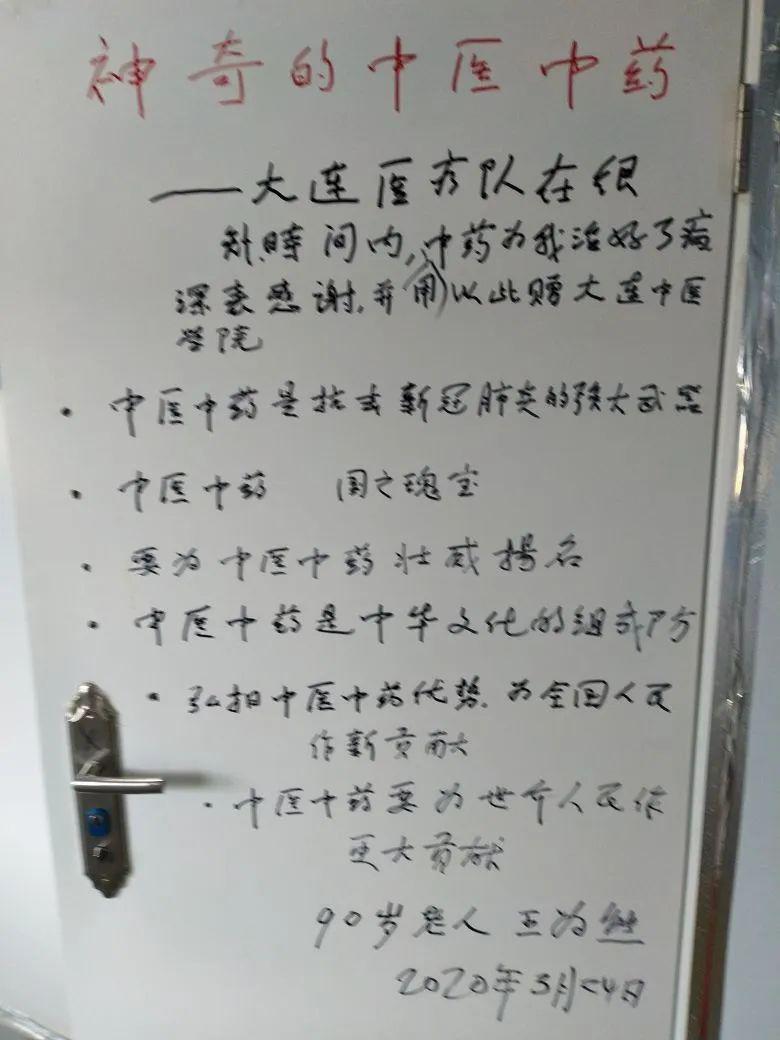 神奇的中医中药
——大连医疗队在很
短时间内,中药为我治好了病
深表感谢,并用以此赠大连中医
学院
· 中医中药是抗击新冠肺炎的强大武器
· 中医中药 国之瑰宝
· 要为中医中药壮威扬名
· 中医中药是中华文化的组成部分
· 弘扬中医中药优势,为全国人民
作新贡献
· 中医中药要为世界人民作
更大贡献
90岁老人 王为
2020年3月24日